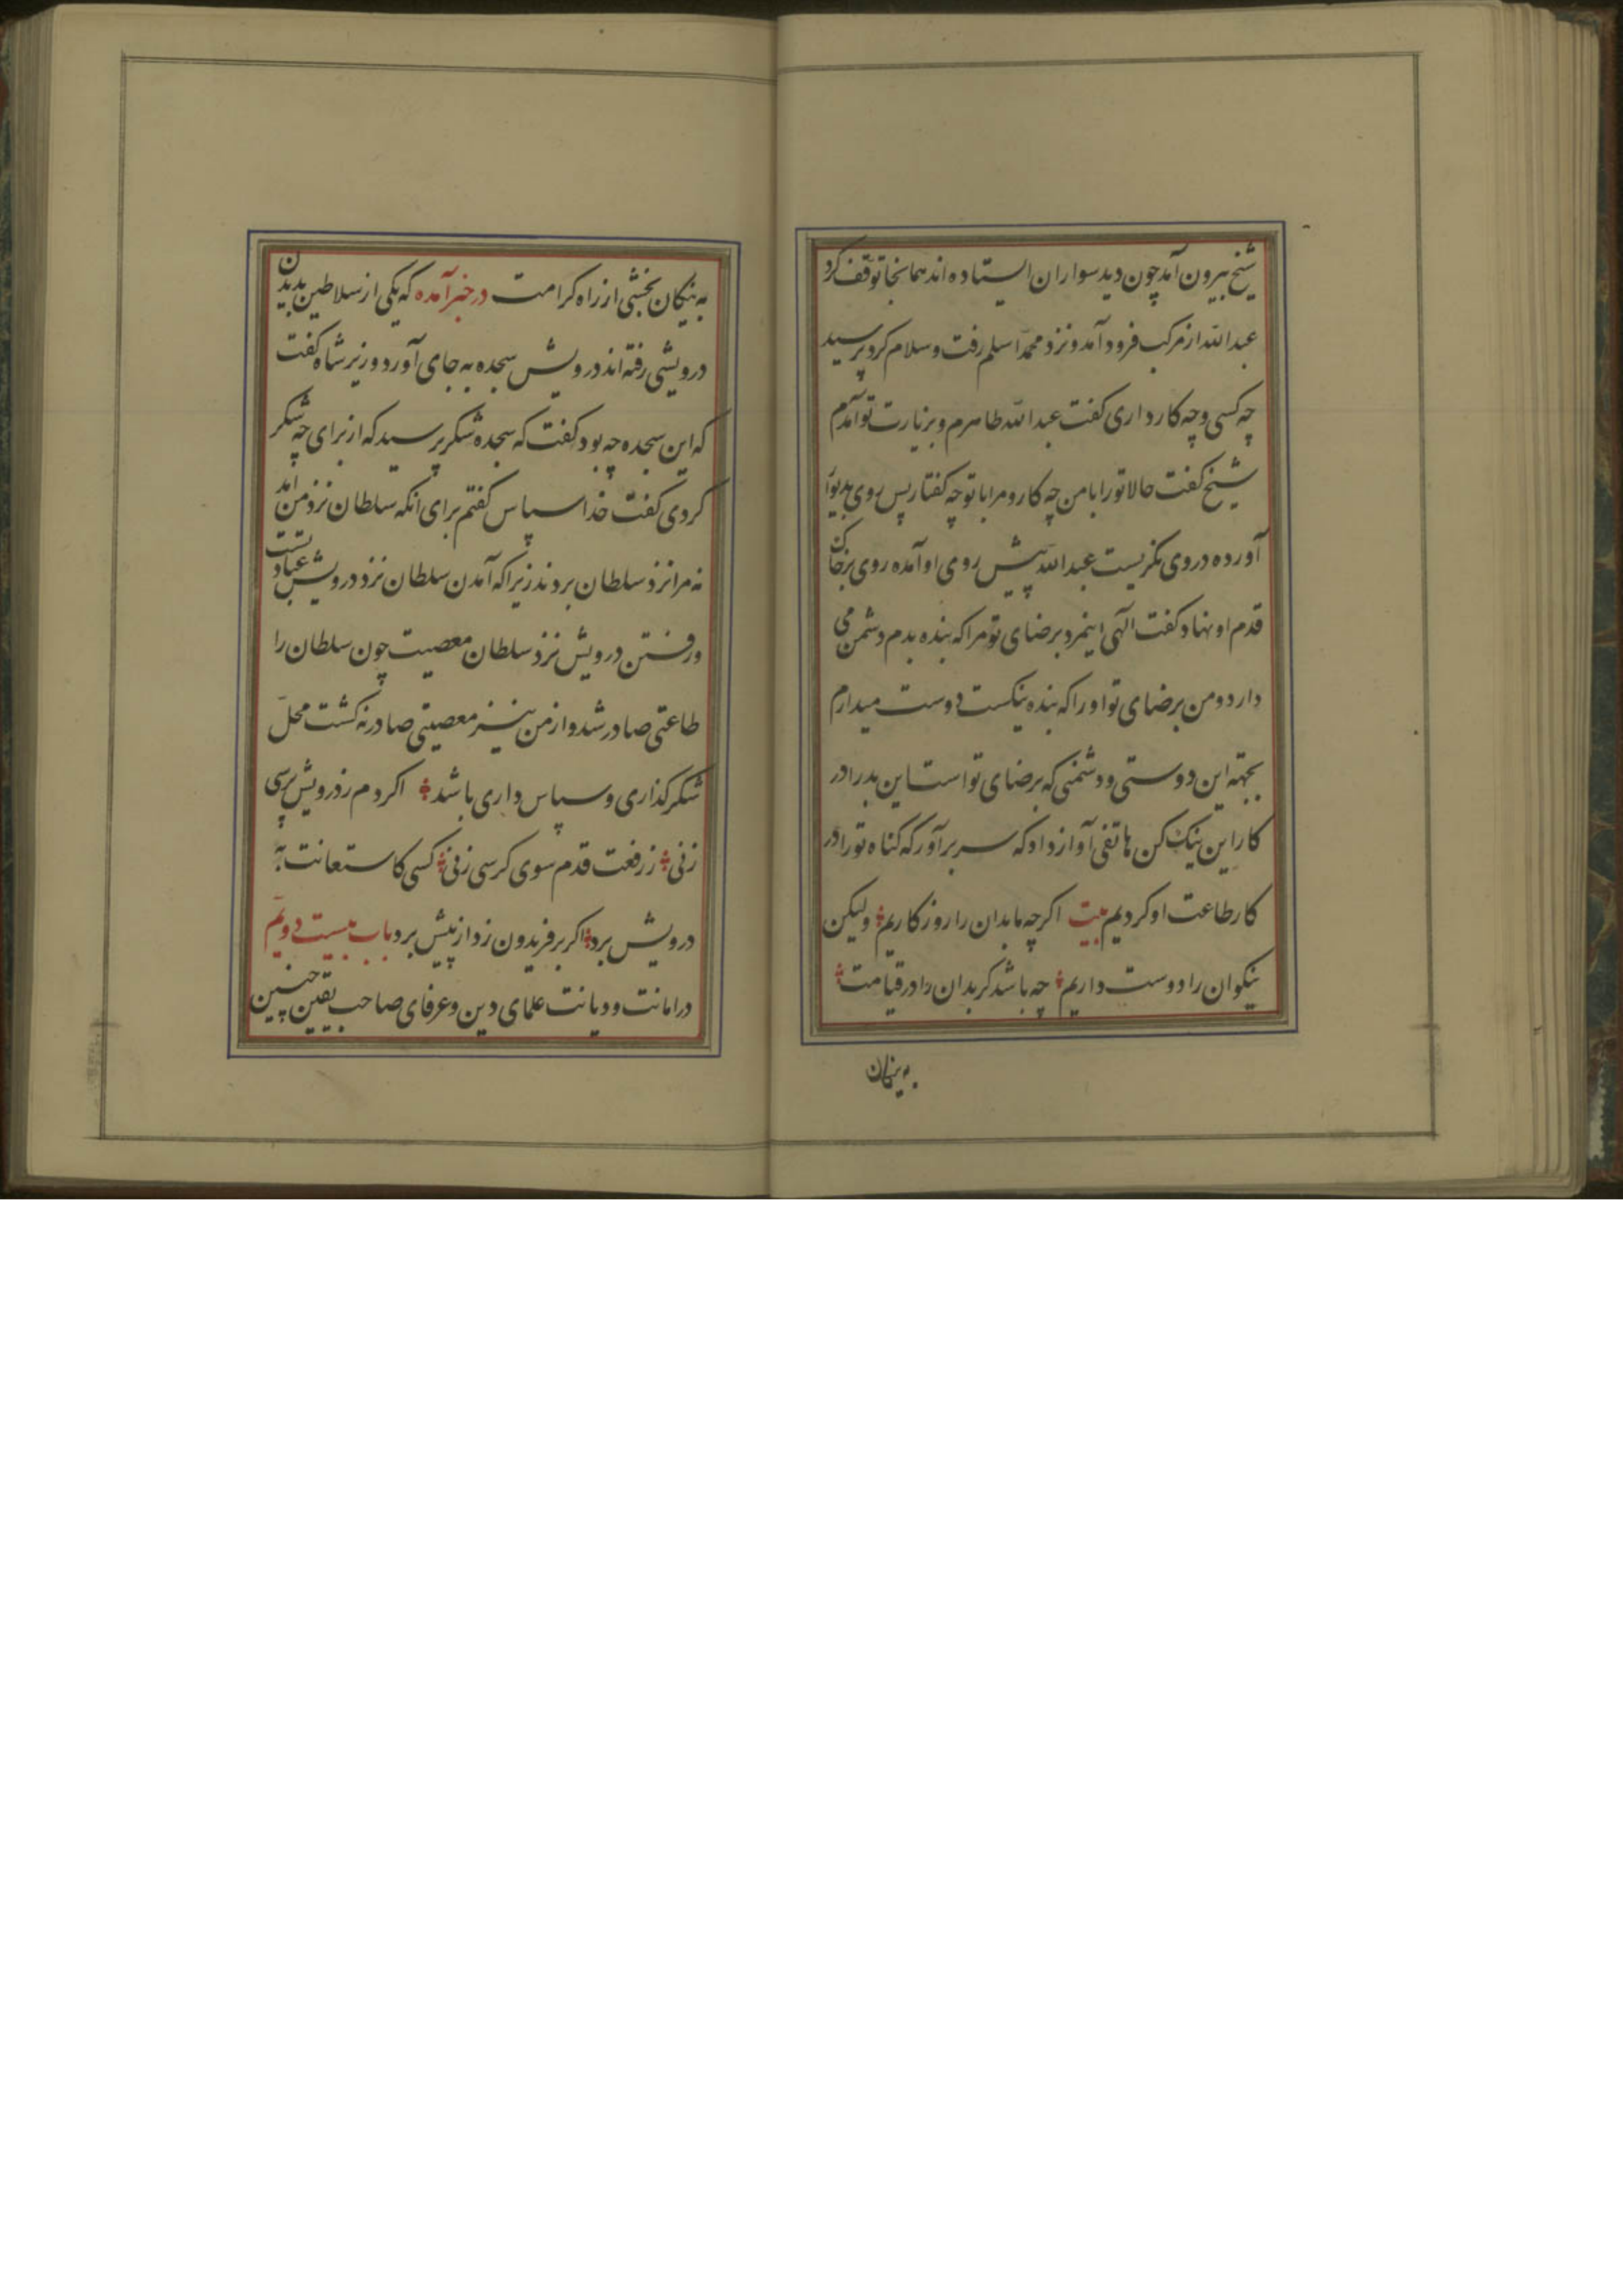 شیخ بیرون آمد چون دید سواران ایستاده اند همانجا توقف کرد
عبدالله از مرکب فرود آمد و نزد محمد اسلم رفت و سلام کرد پرسید
چه کسی و چه کار داری کفت عبدالله طاهرم و بزیارت تو آمدم
شیخ کفت حالا تو را با من چه کار و مرا با تو چه کفتار پس روی بدیوار
آورده در وی نکریست عبدالله پیش روی او آمده روی بر خاک
قدم او نهاد و کفت الهی اینمرد برضای تو مرا که بنده بدم دشمن می
دارد و من برضای تو او را که بنده نیکست دوست میدارم
بجهته این دوستی و دشمنی که برضای تو است این بد را در
کار این نیک کن هاتفی آواز داد که سر برآور که کناه تو را در
کار طاعت او کردیم بیت اکرچه ما بدان را روزکاریم ولیکن
نیکوان را دوست داریم چه باشد کر بدان را در قیامت
به نیکان
به نیکان بخشی از راه کرامت در خبر آمده که یکی از سلاطین بدیدن
درویشی رفته اند درویش سجده به جای آورد وزیر شاه کفت
که این سجده چه بود کفت که سجده شکر پرسید که از برای چه شکر
کردی کفت خدا سپاس کفتم برای انکه سلطان نزد من آمد
نه مرا نزد سلطان بردند زیرا که آمدن سلطان نزد درویش عبادتست
و رفتن درویش نزد سلطان معصیت چون سلطان را
طاعتی صادر شد و از من نیز معصیتی صادر نه کشت محل
شکر کذاری و سپاس داری باشد اکر دم ز درویش پرسی
زنی ز رفعت قدم سوی کرسی زنی کسی کاستعانت به
درویش برد اکر بر فریدون زد از پیش برد باب بیست دویم
در امانت و دیانت علمای دین و عرفای صاحب یقین چنین